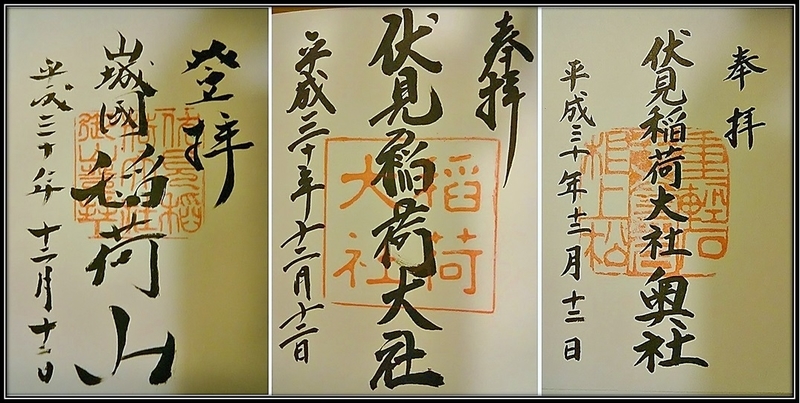 登拝
山城國稲荷山
平成三十年十二月十二日
奉拝
伏見稲荷大社
稲荷
大社
平成三十年十二月十二日
奉拝
伏見稲荷大社奥社
重軽石
根上松
平成三十年十二月十二日